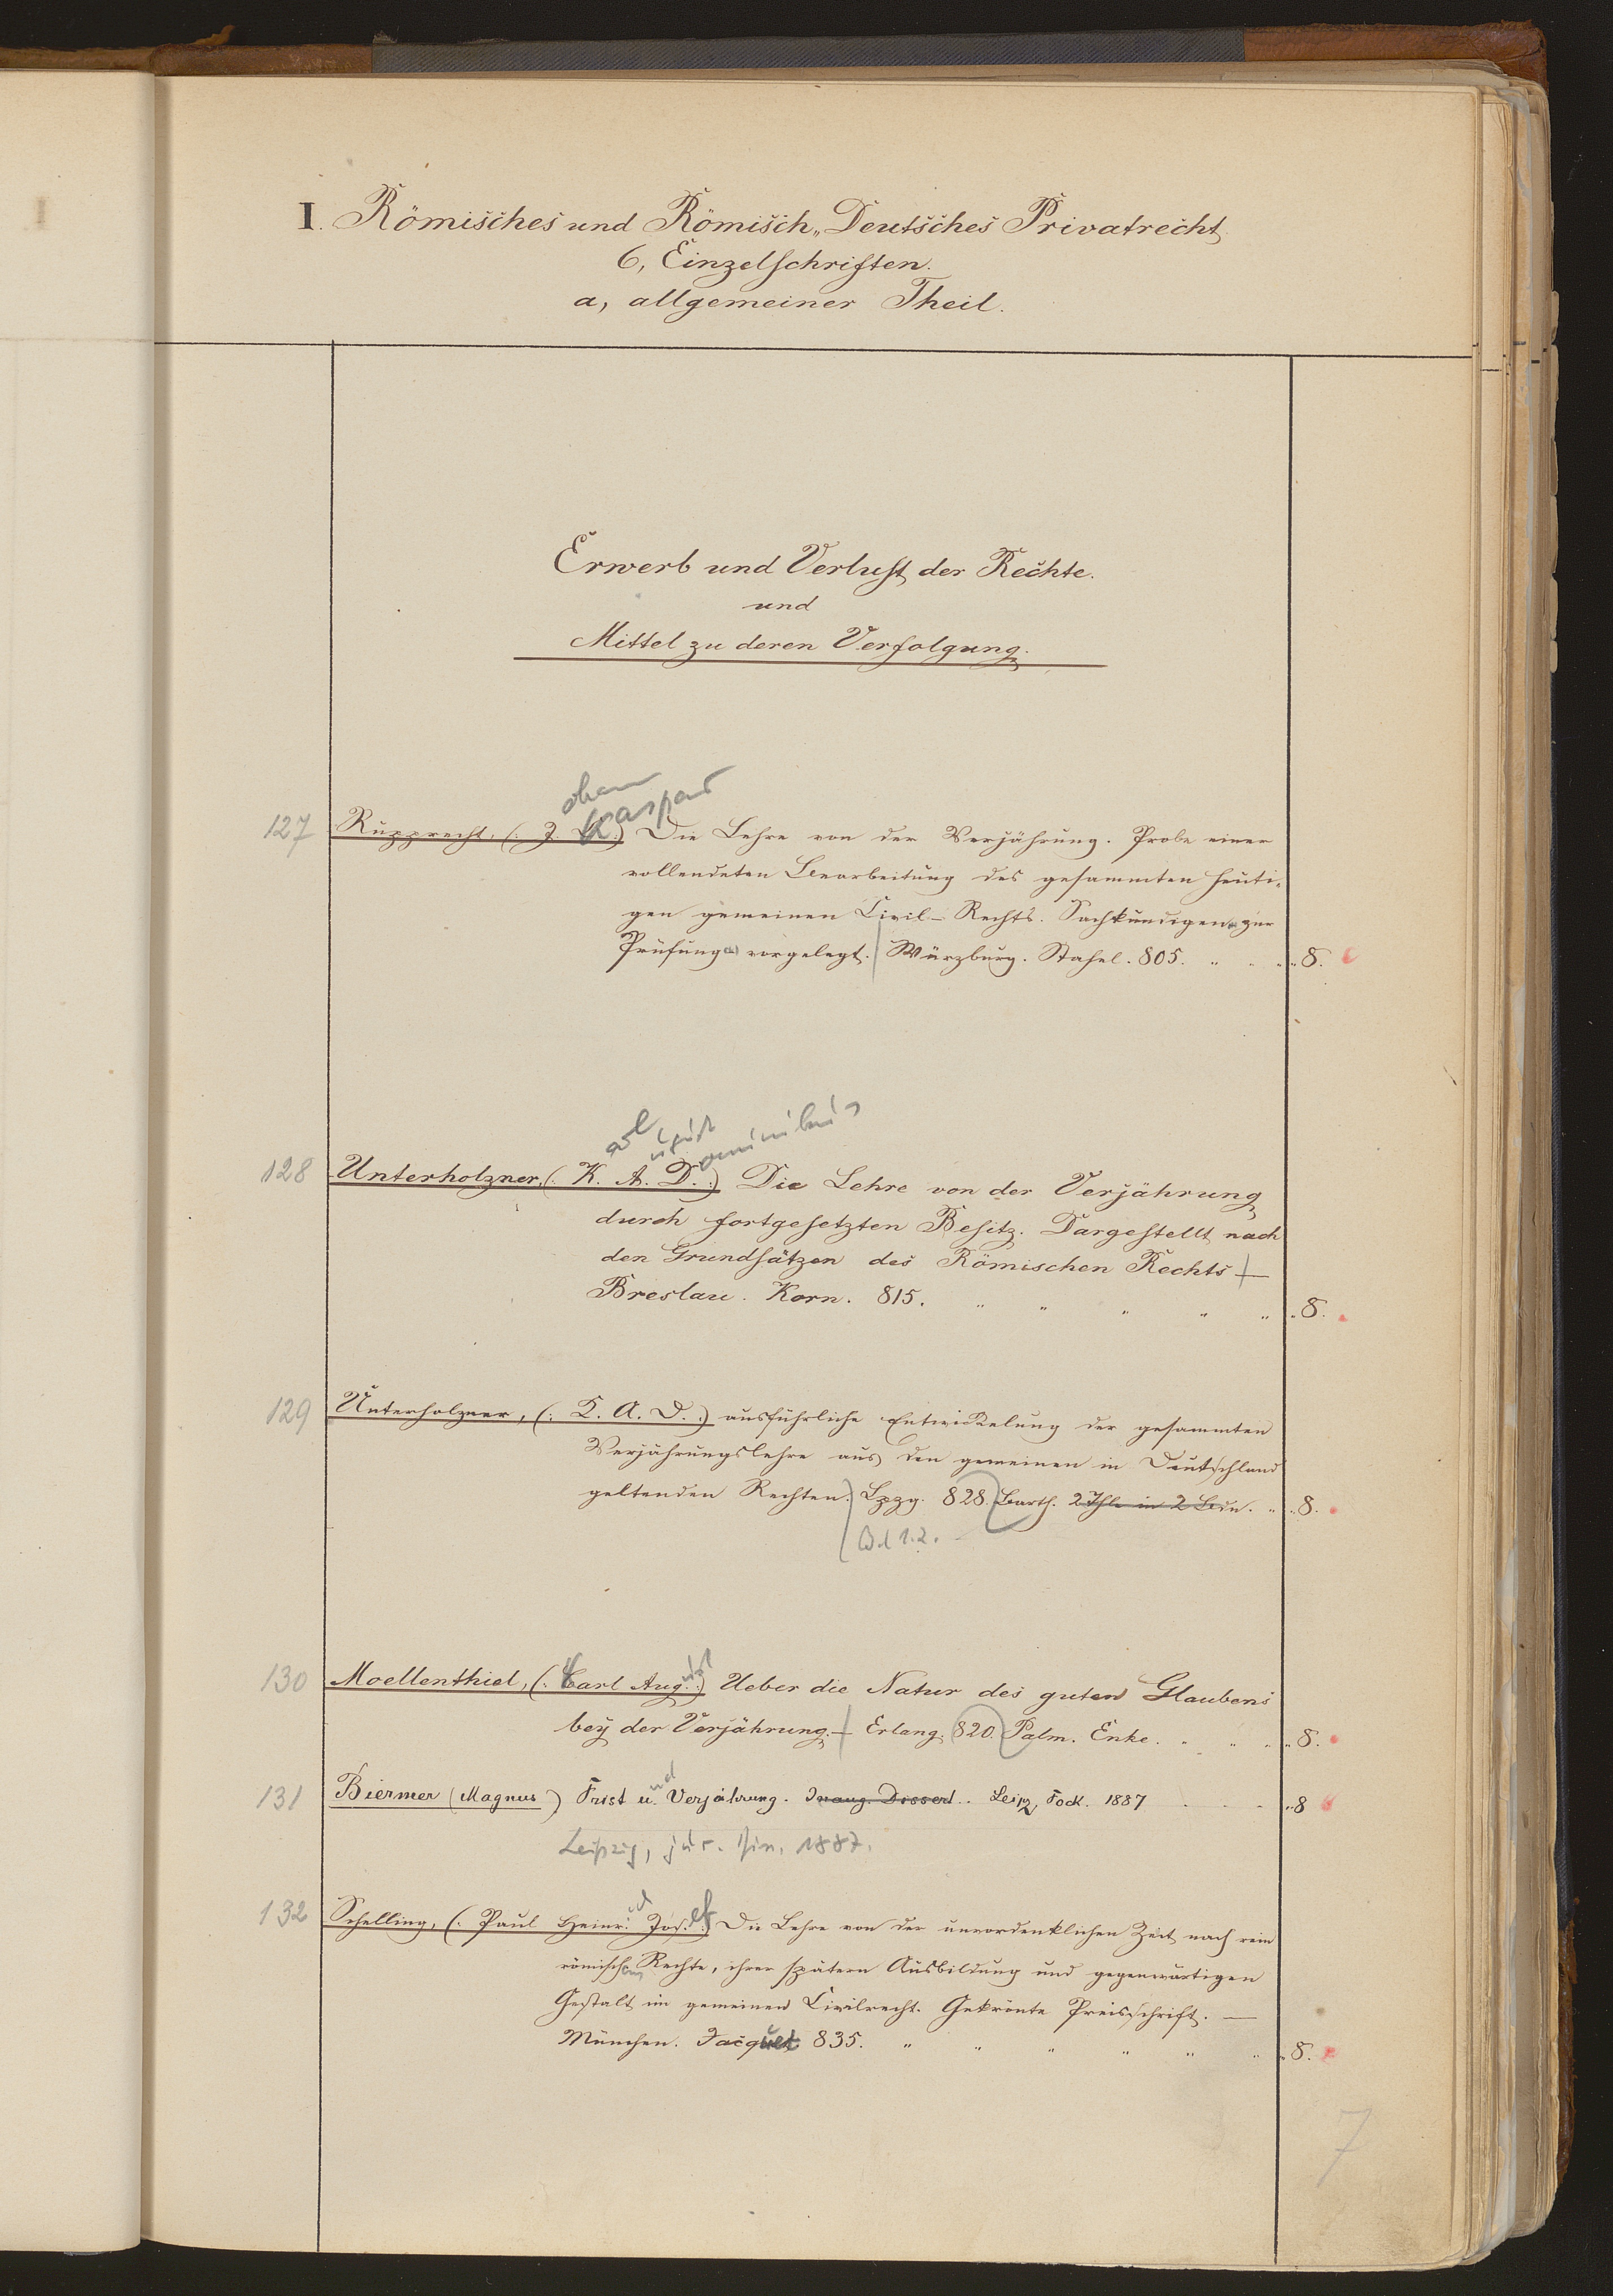 I. Römisches und Römisch„Deutsches Privatrecht
6, Einzelschriften.
a, allgemeiner Theil.
Erwerb und Verlust der Rechte.
und
Mittel zu deren Verfolgung.
ohann
Kaspar
127 Rupprecht, (: J. K.) Die Lehre von der Verjährung. Probe einer
vollendeten Bearbeitung des gesammten heuti-
gen gemeinen Civil-Rechts. Sachkundigen zur
Prüfung vorgelegt. Würzburg. Stahel. 805. „ „ „ „ 8.
arl ugust ominikus
128 Unterholzner, (: K. A. D. :) Die Lehre von der Verjährung
durch fortgesetzten Besitz. Dargestellt nach
den Grundsätzen des Römischen Rechts —
Breslau. Korn. 815. „ „ „ „ „ „ 8.
129 Unterholzner, (: K. A. D. :) ausführliche Entwickelung der gesammten
Verjährungslehre aus den gemeinen in Deutschland
geltenden Rechten. Lpzg. 828. Barth. 2 Thle in 2 Bdn. „ „ 8.
Bd 1.2.
130 Moellenthiel, (: Carl August :) Ueber die Natur des guten Glaubens
bey der Verjährung. — Erlang. 820. Palm. Enke. „ „ „ „ 8.
131 Biermer (Magnus) Frist und Verjährung. Inaug. Dissert.. Leipz, Fock. 1887 „ 8
Leipzig, jur. Diss. 1887.
132 Schelling, (: Paul Heinrich Josef :) Die Lehre von der unvordenklichen Zeit nach rein
römischem Rechte, ihrer spätern Ausbildung und gegenwärtigen
Gestalt im gemeinen Civilrecht. Gekrönte Preisschrift. —
München. Jacquet 835. „ „ „ „ „ „ „ 8.
7